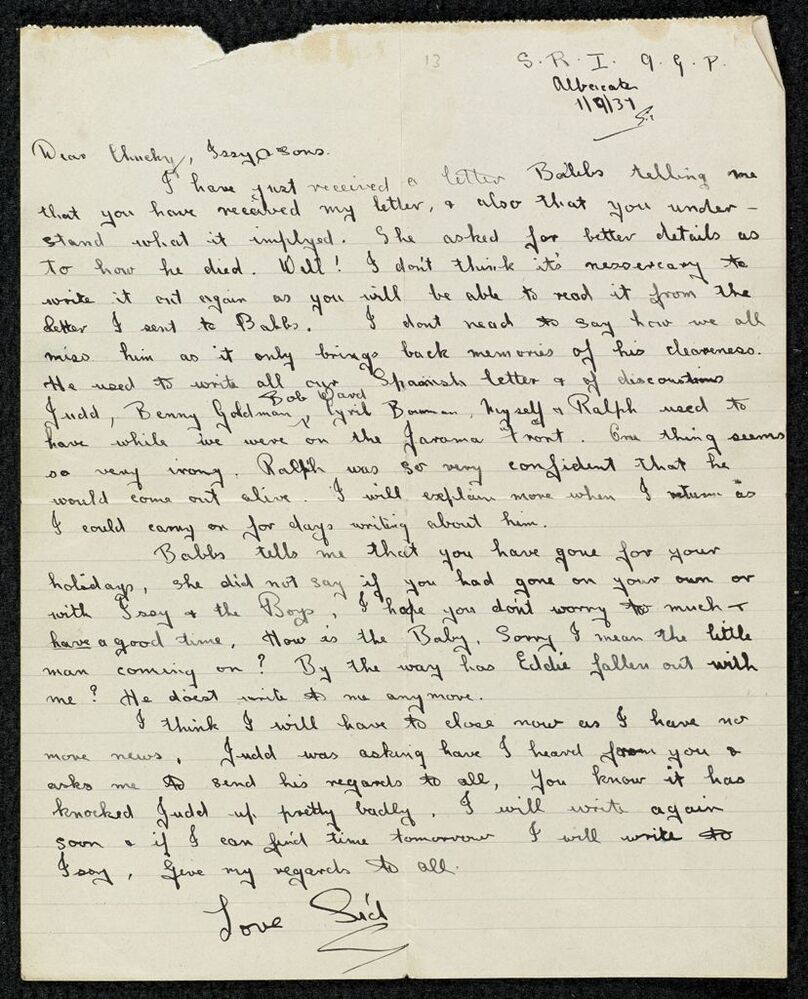 13
S. R. I. 9. G. P.
Albercate
1/9/37
Sid
Dear Chucky, Issy & sons.
I have just received a letter Babbs telling me
that you have received my letter, & also that you under-
stand what it implyed. She asked for better details as
to how he died. Well! I don't think it's nessercary to
write it out again as you will be able to read it from the
letter I sent to Babbs. I dont nead to say how we all
miss him as it only brings back memories of his cleaveness.
He used to write all our Spainish letter & of discoustions
Bob Ward
Judd, Benny Goldman, Cyril Bowman, Myself & Ralph used to
have while we were on the Jarama Front. One thing seems
so very irony. Ralph was so very confident that he
would come out alive. I will explain more when I return as
I could carry on for days writing about him.
Babbs tells me that you have gone for your
holidays, she did not say if you had gone on your own or
with Issy & the Boys, I hope you don't worry to much &
have a good time, How is the Baby. Sorry I mean the little
man coming on? By the way has Eddie fallen out with
me? He does't write to me anymore.
I think I will have to close now as I have no
more news, Judd was asking have I heard from you &
asks me to send his regards to all, You know it has
knocked Judd up pretty badly. I will write again
soon & if I can find time tomorrow I will write to
Issy, Give my regards to all.
Love Sid